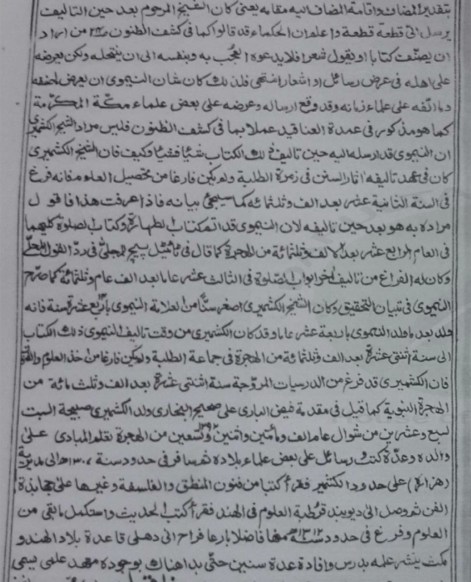 بتقدير المضاف واقامة المضاف اليه مقامه يعني كان الشيخ المرحوم بعد حين التاليف
يرسل الى قطعة قطعة واعلم ان الحكماء قد قالوا كما في كشف الظنون من اراد
ان يصنف كتابا او يقول شعرا فلا يدعوه العجب به وبنفسه الى ان ينتحله ولكن يعرضه
على اهله في عرض رسائل او اشعار انتهى فلذلك كان شان النيموي ان يعرض
على علماء زمانه وقد وقع ارساله وعرضه على بعض علماء مكة المكرمة
كما هو مذكور في عمدة العناقيد عملا بما في كشف الظنون فليس مراد الشيخ الكشميري
ان النيموي قد ارسله اليه حين تاليف ذلك الكتاب شيئا فشيئا وكيف فان الشيخ الكشميري
كان في عهد تاليف اثار السنن في زمرة الطلبة ولم يكن فارغا من تحصيل العلوم فانه فرغ
في السنة الثانية عشر بعد الف وثلثمائة كما سيجئ بيانه فاذا عرفت هذا فاقول
مراده به هو بعد حين تاليفه لان النيموي قد اتم كتاب الطهارة وكتاب الصلوة كليهما
في العام الرابع عشر بعد الالف وثلثمائة من الهجرة كما قال في
وكان له الفراغ من تاليف ابواب الصلوة في الثالث عشر عاما بعد الف عام وثلثمائة كما صرح
النيموي في تبيان التحقيق وكان الشيخ الكشميري اصغر سنا من العلامة النيموي باربع عشرة سنة فانه
ولد بعد ما ولد النيموي باربعة عشر عاما وقد كان الكشميري من وقت تاليف النيموي ذلك الكتاب
الى سنة اثنتي عشرة بعد الف وثلثمائة من الهجرة في جماعة الطلبة ولم يكن فارغا من اخذ العلوم
فان الكشميري قد فرغ من الدرسيات المروجة سنة اثنتي عشرة بعد الف وثلث مائة من
الهجرة النبوية كما قيل في مقدمة فيض الباري على صحيح البخاري ولد الكشميري صبيحة السبت
لسبع وعشرين من شوال عام الف ومأتين واثنين وتسعين من الهجرة تعلم المبادي على
والده وعدة كتب ورسائل على بعض علماء بلاده ثم سافر في حدود سنة ١٣٠٧ الى مديرية
(هزاره) على حدود الكشمير فقرأ كتبا من فنون المنطق والفلسفة وغيرها على جهابذة
الفن ثم وصل الى ديوبند قرطبة العلوم في الهند فقرأ كتب الحديث واستكمل ما بقي من
العلوم وفرغ في حدود ١٣١٢ منها فاضلا بارعا فراح الى دهلي قاعدة بلاد الهند و
مكث ينشر علمه بدرس وافادة عدة سنين حتى بدا هناك بوجوده معهد علمي يسمى